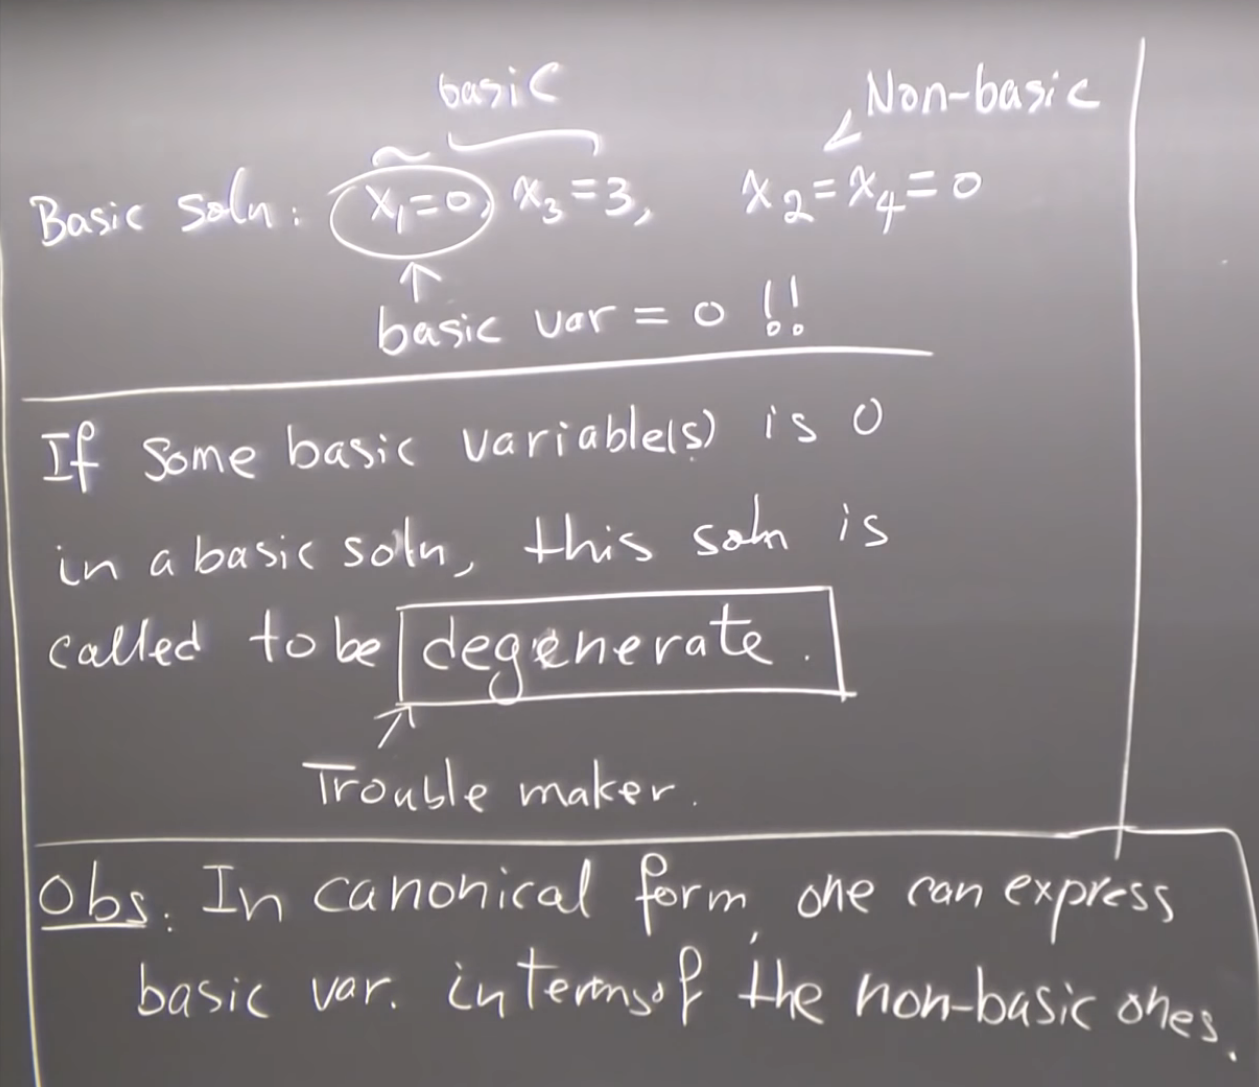 basic
Non-basic
Basic soln: x₁=0, x₃=3, x₂=x₄=0
basic var = 0 !!
If some basic variable(s) is 0
in a basic soln, this soln is
called to be degenerate.
Trouble maker.
Obs. In canonical form, one can express
basic var. in terms of the non-basic ones.